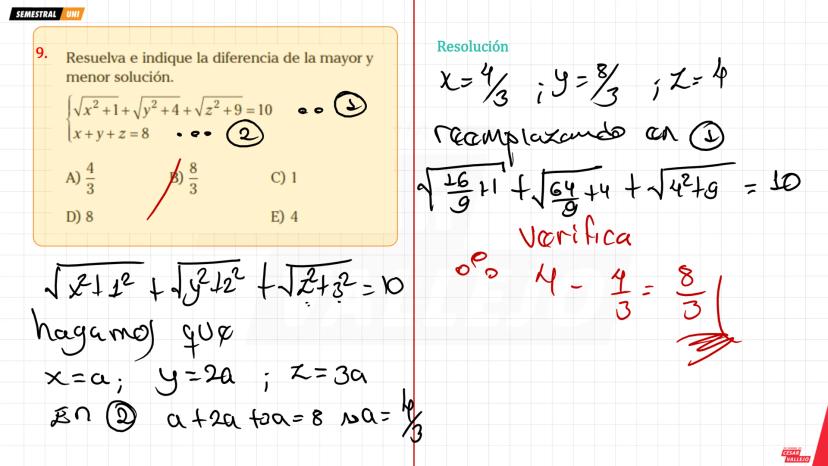 SEMESTRAL UNI
9. Resuelva e indique la diferencia de la mayor y
menor solución.
√(x²+1) + √(y²+4) + √(z²+9) = 10 ... ①
x + y + z = 8 ... ②
A) 4/3 B) 8/3 C) 1
D) 8 E) 4
√(x²+1²) + √(y²+2²) + √(z²+3²) = 10
hagamos que
x = a; y = 2a ; z = 3a
En ② a + 2a + 3a = 8 → a = 4/3
Resolución
x = 4/3 ; y = 8/3 ; z = 4
reemplazando en ①
√(16/9 + 1) + √(64/9 + 4) + √(4² + 9) = 10
verifica
∴ 4 - 4/3 = 8/3
CÉSAR
VALLEJO